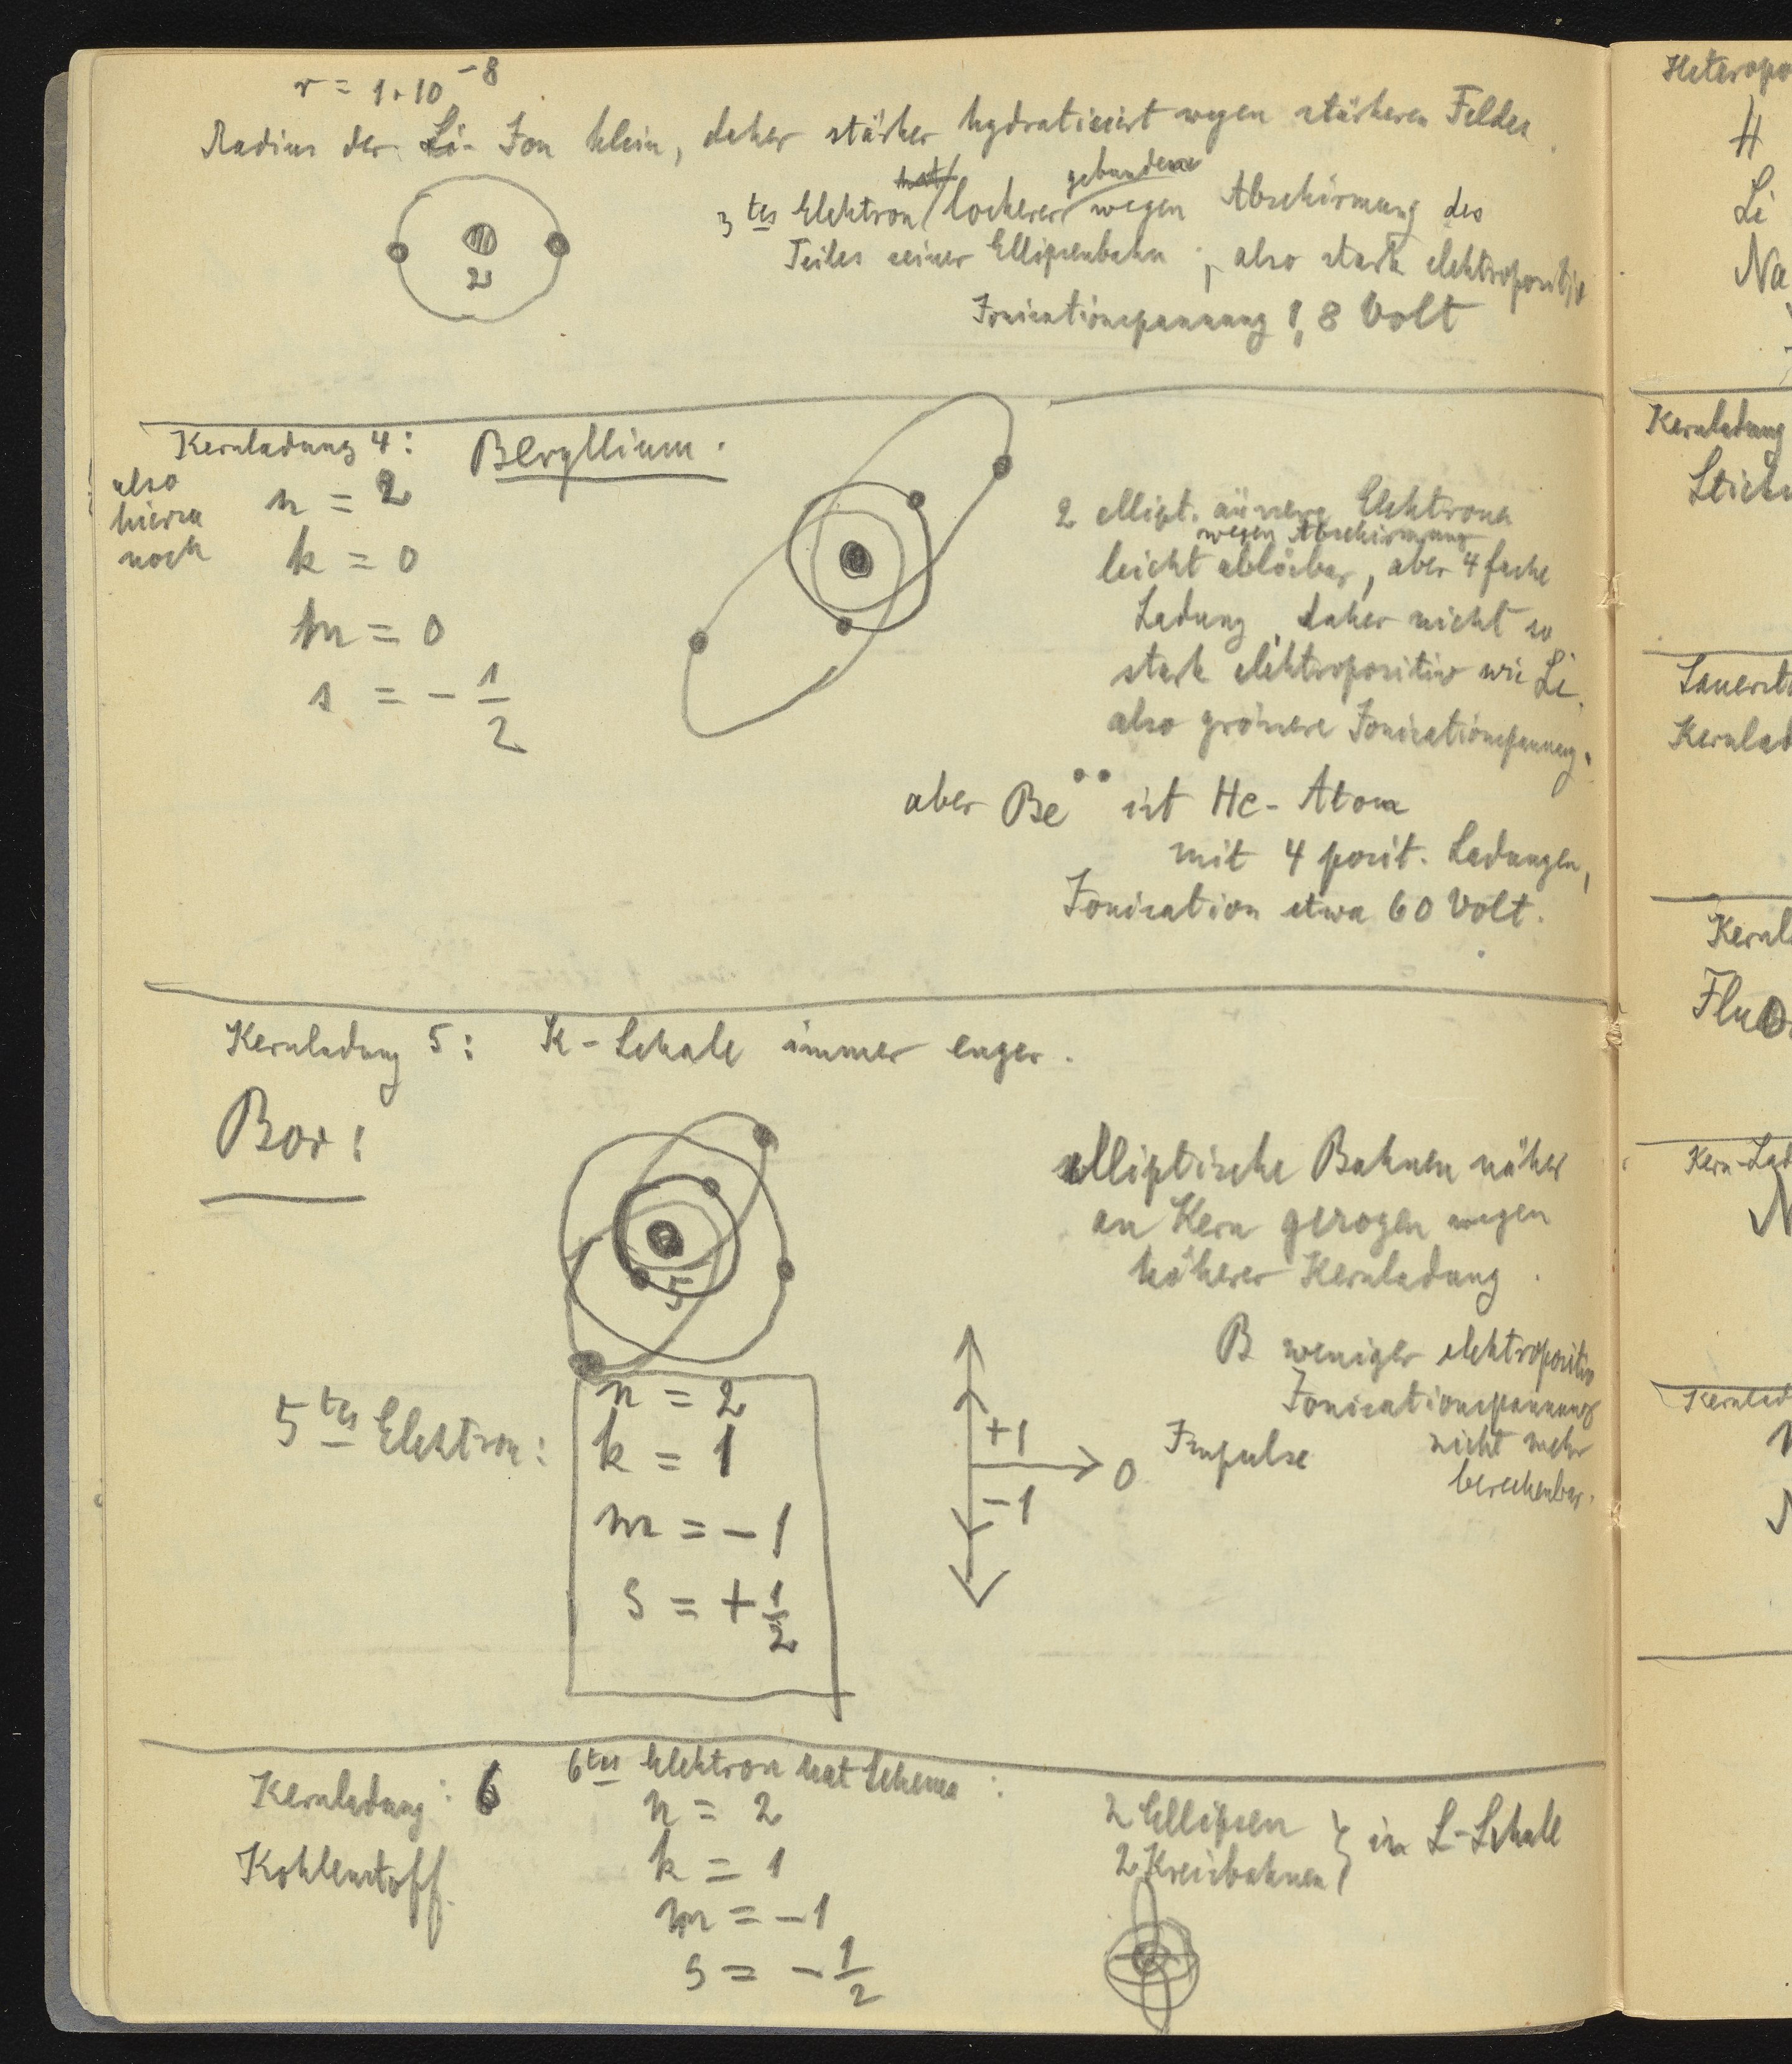 r = 1·10⁻⁸
Radius der Li-Ion klein, daher stärker hydratisiert wegen stärkeren Feldes
3tes Elektron lockerer gebunden wegen Abschirmung des
Teiles seiner Ellipsenbahn, also stark elektropositiv
Ionisationspannung 1,8 Volt
2
Kernladung 4: Beryllium.
also
hierzu
noch
n = 2
k = 0
m = 0
s = - 1/2
2 ellipt. äussere Elektronen
wegen Abschirmung
leicht ablösbar, aber 4 fache
Ladung, daher nicht so
stark elektropositiv wie Li.
also grössere Ionisationspannung.
aber Be¨ ist He-Atom
mit 4 posit. Ladungen,
Ionisation etwa 60 Volt.
Kernladung 5: K-Schale immer enger.
Bor:
5
elliptische Bahnen näher
an Kern gezogen wegen
höherer Kernladung.
B weniger elektropositiv
Ionisationspannung
nicht mehr
berechenbar.
5tes Elektron:
n = 2
k = 1
m = -1
s = + 1/2
+1
0
-1
Impulse
Kernladung: 6
Kohlenstoff.
6tes Elektron hat Schema:
n = 2
k = 1
m = -1
s = - 1/2
2 Ellipsen
2 Kreisbahnen } in L-Schale
Heteropo
H
Li
Na
Kernladung
Sticks
Sauersto
Kernlad
Kernl
Fluo
Kern-Lad
N
Kernlad